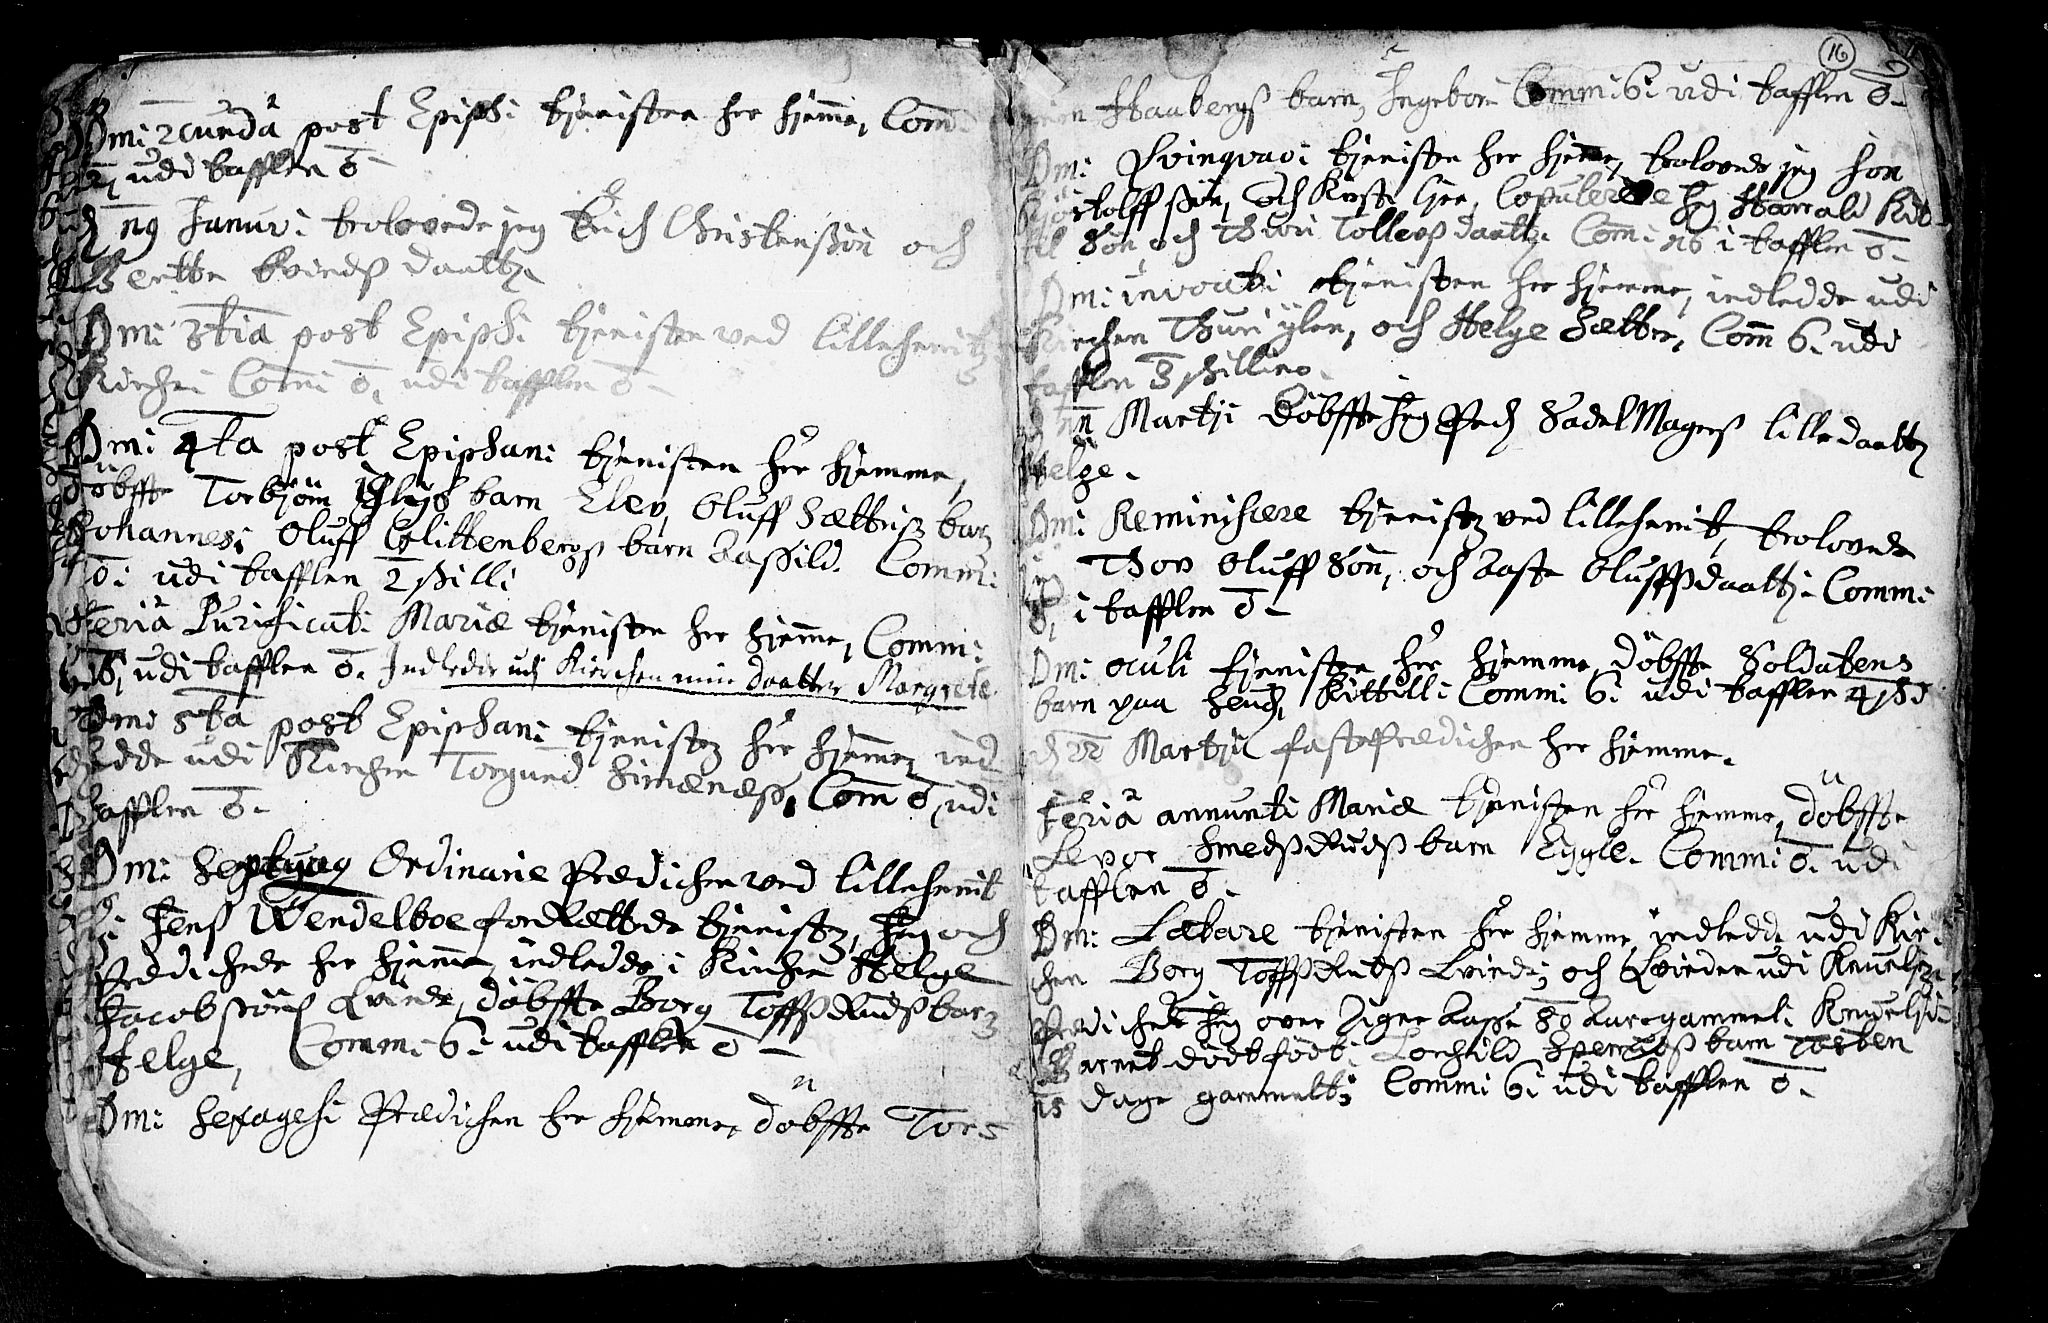 Dmi: 2cunda post Epiphi tjenisten her hjemme, Com̄:
udi tafflen o
19 Januar: trolovede jeg Erich Christenssön och
Berette Evindss daatter
Dmi 3tia post Epiphi tjenisten ved lilleherrit
Kirche: Com̄: o, udi tafflen o
Dmi 4ta post Epiphani tjenisten her hjemme,
döbffte Torbjörn barn Elev, Oluff Sættriss barn
Johannes; Oluff Clittenbergss barn Aassild. Comm:
o: udi tafflen 2 skilli
Feria Purificati: Mariæ tjenisten her hjemme, Commi:
16, udi tafflen o. Indledde udi Kierchen min daatter Margrete
Dmi 5ta post Epiphani tjenisten her hjemme, ind
ledde udi Kirchen Torgund Com̄ o, udi
tafflen o.
Dmi: Septuag Ordinarie Prædichen ved lilleherrit
Hr: Jenss Wendelboe forrettede tjenisten, Jeg och
Prædichede her hjemme, indledde i Kirchen Helge
Jacobssöns Qvinde, döbffte Borg Toffssrudss barn
Helge, Comm: 6: udi tafflen o
Dmi: Sexagesi Prædichen her hjemme, döbffte Tors
16
Haabergss barn, Ingebor: Commi: 6: udi tafflen o.
Dmi: Qvinqvagi tjenisten her hjemme, trolovede jeg Jon
Kjöstolffssön, och Kirsti Copulerede Jeg Harrald Kit-
til Sön och Thori Tollerss daatter. Com̄: 16 i tafflen o.
Dmi: invocati tjenisten her hjemme, indledde udi
Kirchen Thuri och Helge Sætter, Com̄ 6. udi
tafflen 8 skilling.
11 Martji döbffte Jeg Peder Sadel Magerss lille daatter
Helge.
Dmi: Reminiscere tjenisten ved lilleherrit, trolovede
jeg Thor Oluff Sön, och Aaste Oluffssdaatter. Comm:
8, i tafflen o.
Dmi: oculi tjenisten her hjemme, döbffte Soldatens
barn paa Kittill: Comm: 6: udi tafflen 4 sk:
d 22 Martji fastePrædichen her hjemme.
Feria annunti Mariæ tjenisten her hjemme, döbffte
Levor Smedssrudss barn Eggle. Comm: o. udi
tafflen o.
Dmi: Lætare tjenisten her hjemme, indledde udi Kir-
chen Borg Toffssrudss Qvinde; och Qvinden udi
Prædichede Jeg over Aasse 80 Aar gammel:
Barnet dödt födt; Lochild barn Tosten
15 dage gammelt; Comm: 6: udi tafflen o.